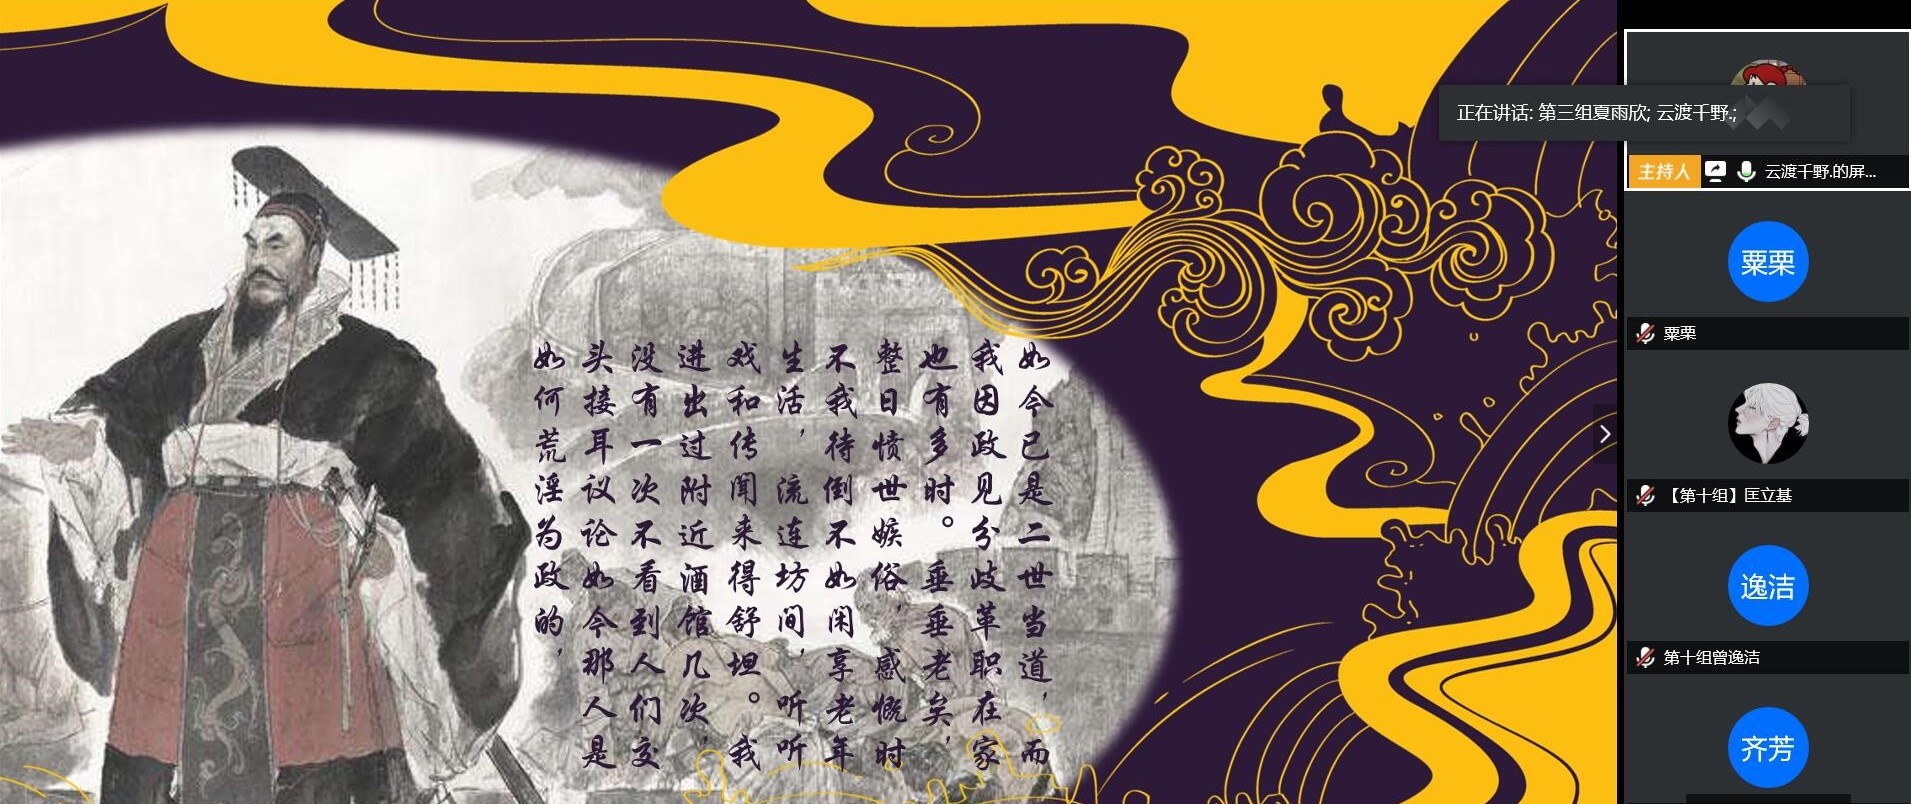 如今已是二世当道，而
我因政见分歧革职在家
也有多时。垂垂老矣，
整日愤世嫉俗，感慨时
不我待倒不如闲享老年
生活，流连坊间，听听
戏和传闻来得舒坦。我
进出过附近酒馆几次，
没有一次不看到人们交
头接耳议论如今那人是
如何荒淫为政的，
正在讲话: 第三组夏雨欣; 云渡千野.;
主持人 云渡千野.的屏...
粟栗
粟栗
【第十组】匡立基
逸洁
第十组曾逸洁
齐芳